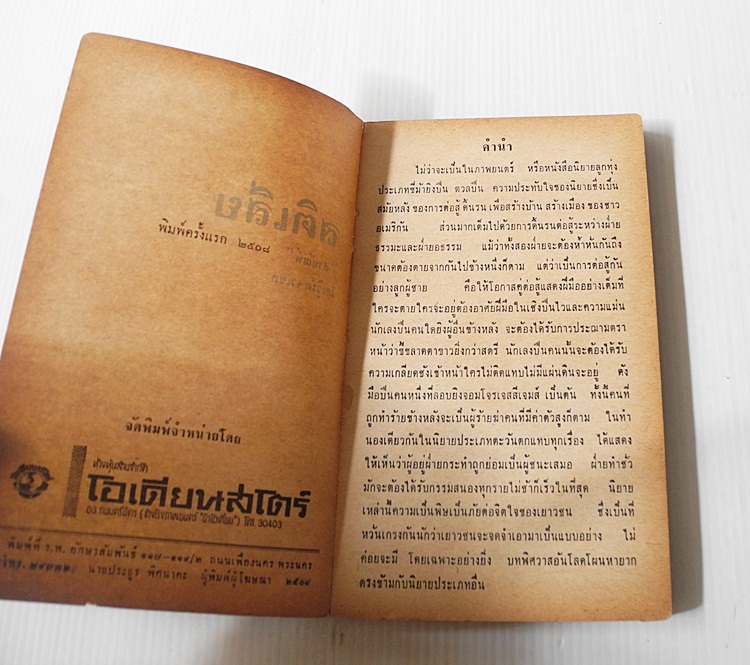 พิมพ์ครั้งแรก ๒๕๐๘
จัดพิมพ์จำหน่ายโดย
ห้างหุ้นส่วนจำกัด
โอเดียนสโตร์
โทร. 30403
พิมพ์ที่ ร.พ. อักษรสัมพันธ์ ๑๑๗-๑๑๙/๒ ถนนเฟื่องนคร พระนคร
นายประยูร พิศนาคะ ผู้พิมพ์ผู้โฆษณา ๒๕๐๘
คำนำ
ไม่ว่าจะเป็นในภาพยนตร์ หรือหนังสือนิยายลูกทุ่ง
ประเภทขี่ม้ายิงปืน ดวลปืน ความประทับใจของนิยายซึ่งเป็น
สมัยหลัง ของการต่อสู้ ดิ้นรน เพื่อสร้างบ้าน สร้างเมือง ของชาว
อเมริกัน ส่วนมากเต็มไปด้วยการดิ้นรนต่อสู้ระหว่างฝ่าย
ธรรมะและฝ่ายอธรรม แม้ว่าทั้งสองฝ่ายจะต้องห้ำหั่นกันถึง
ขนาดต้องตายจากกันไปข้างหนึ่งก็ตาม แต่ว่าเป็นการต่อสู้กัน
อย่างลูกผู้ชาย คือให้โอกาสคู่ต่อสู้แสดงฝีมืออย่างเต็มที่
ใครจะตายใครจะอยู่ต้องอาศัยฝีมือในเชิงปืนไวและความแม่น
นักเลงปืนคนใดยิงผู้อื่นข้างหลัง จะต้องได้รับการประฌามตรา
หน้าว่าขี้ขลาดตาขาวยิ่งกว่าสตรี นักเลงปืนคนนั้นจะต้องได้รับ
ความเกลียดชังเข้าหน้าใครไม่ติดแทบไม่มีแผ่นดินจะอยู่ ดัง
มือปืนคนหนึ่งที่ลอบยิงจอมโจรเจสสีเจมส์ เป็นต้น ทั้งนี้คนที่
ถูกทำร้ายข้างหลังจะเป็นผู้ร้ายฆ่าคนที่มีค่าตัวสูงก็ตาม ในทำ
นองเดียวกันในนิยายประเภทตะวันตกแทบทุกเรื่อง ได้แสดง
ให้เห็นว่าผู้อยู่ฝ่ายกระทำถูกย่อมเป็นผู้ชนะเสมอ ฝ่ายทำชั่ว
มักจะต้องได้รับกรรมสนองทุกรายไม่ช้าก็เร็วในที่สุด นิยาย
เหล่านี้ความเป็นพิษเป็นภัยต่อจิตใจของเยาวชน ซึ่งเป็นที่
หวั่นเกวงกันนักว่าเยาวชนจะจดจำเอามาเป็นแบบอย่าง ไม่
ค่อยจะมี โดยเฉพาะอย่างยิ่ง บทพิศวาสอันโลดโผนหายาก
ตรงข้ามกับนิยายประเภทอื่น